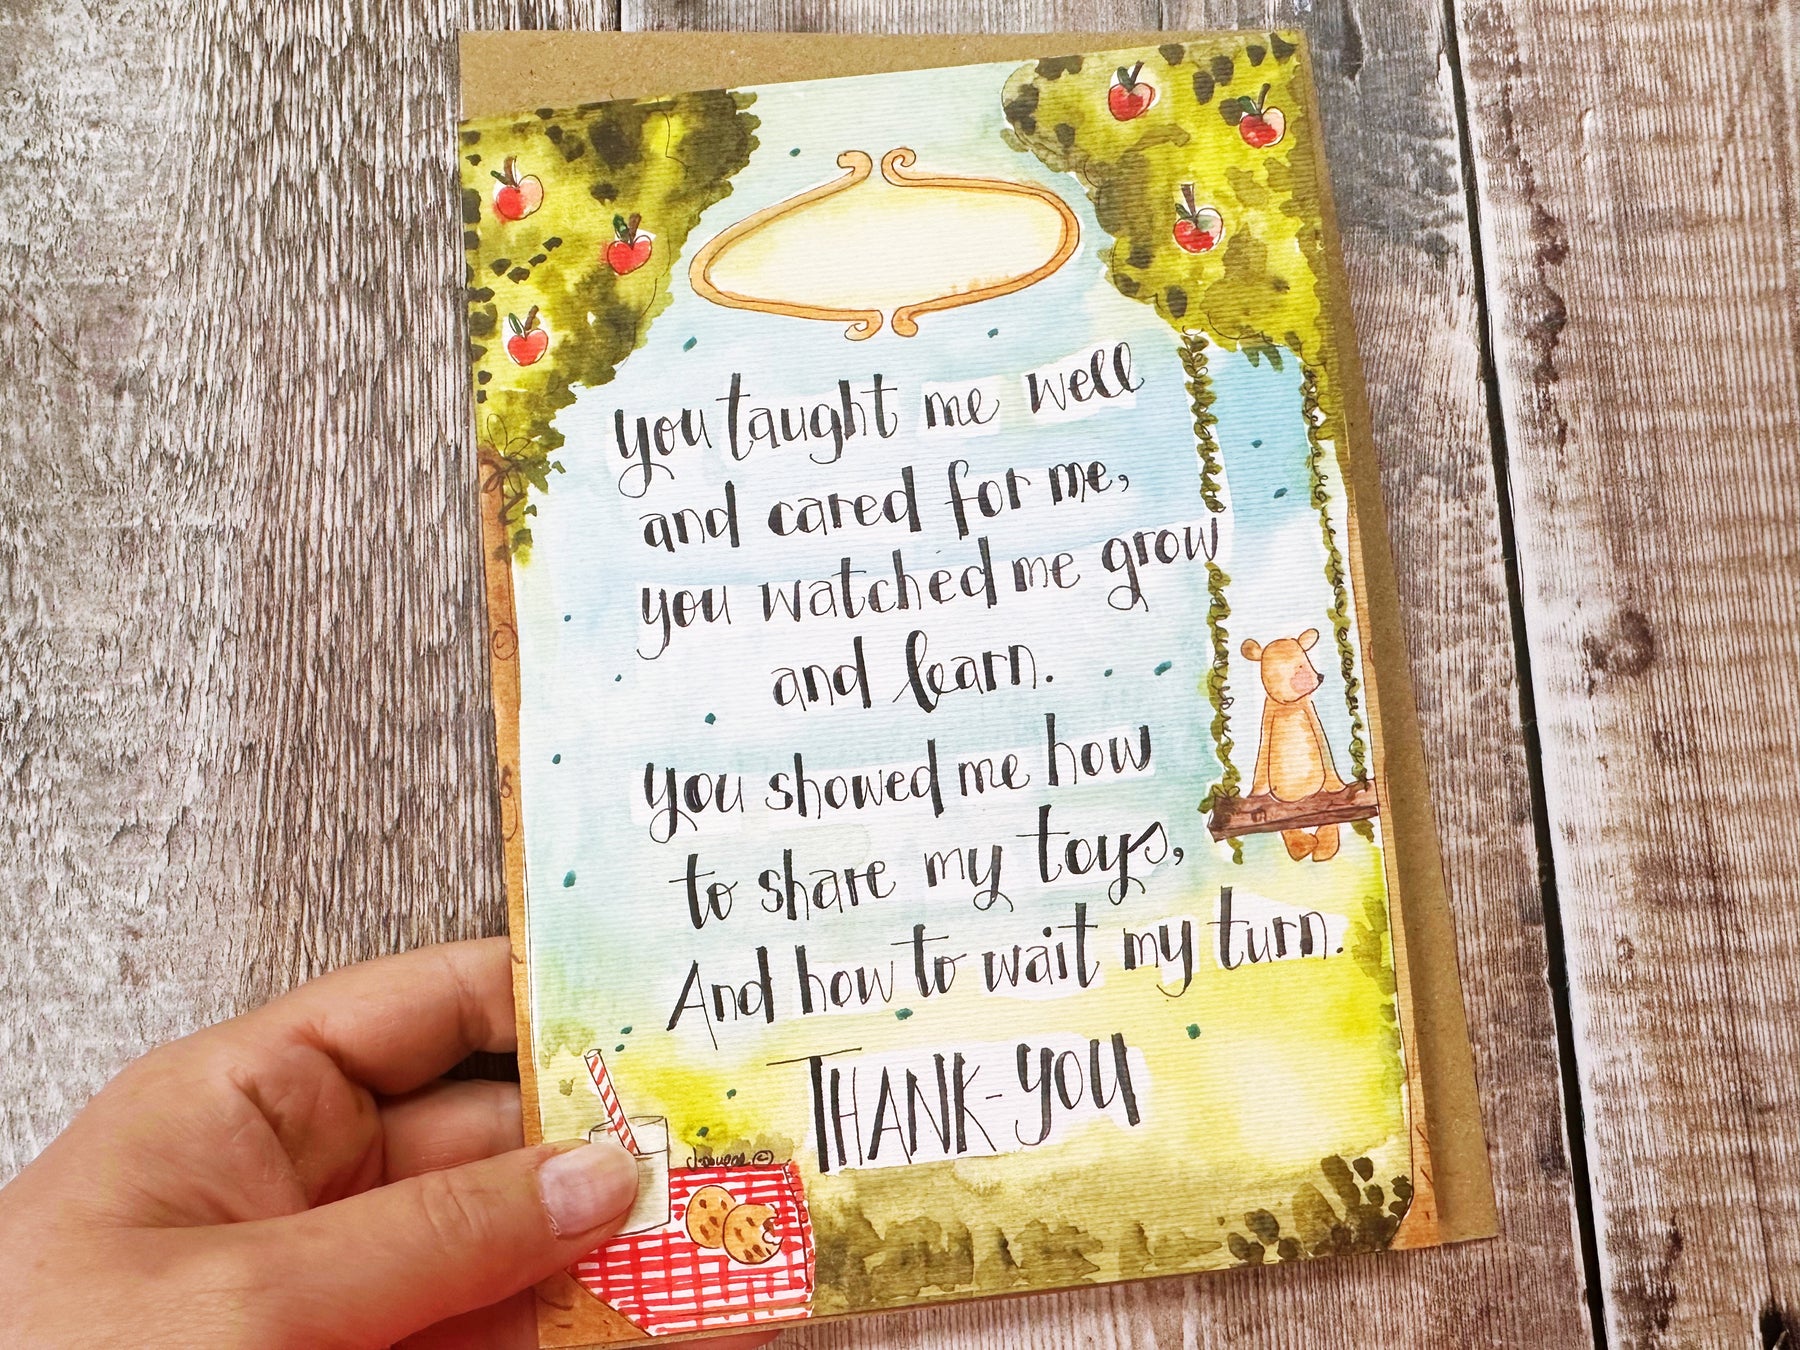 you taught me well
and cared for me,
you watched me grow
and learn.
you showed me how
to share my toys,
And how to wait my turn.
THANK-YOU
©